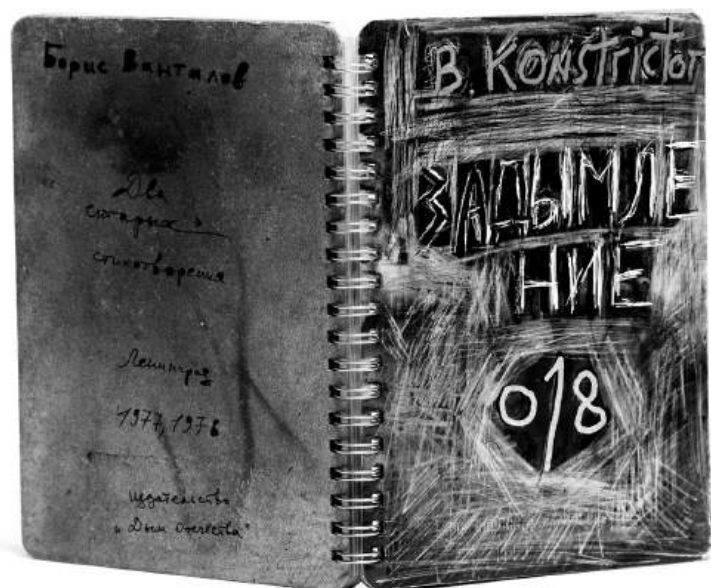 Борис Ванталов
Два
старых
стихотворения
Ленинград
1977, 1978
издательство
"Дым Отечества"
B. KONStriCtor
ЗАДЫМЛЕ
НИЕ
018